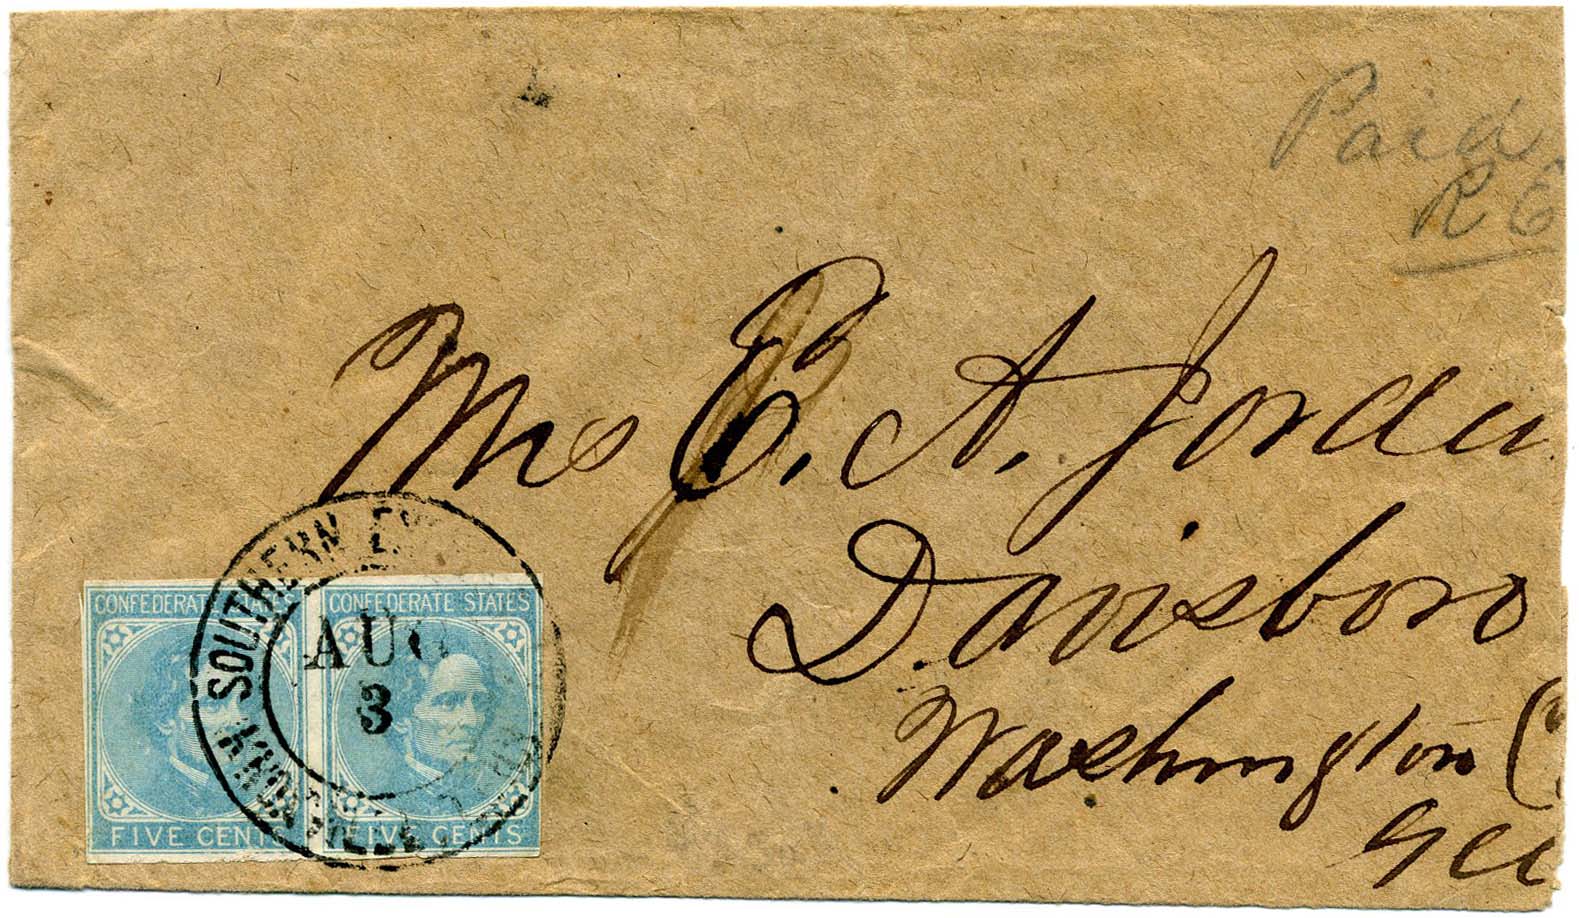 Paid
R E
Mrs E. A. Jordan
Davisboro
Washington C
Geo
SOUTHERN EX
KNOXVILLE
AUG
3
CONFEDERATE STATES
FIVE CENTS
CONFEDERATE STATES
FIVE CENTS